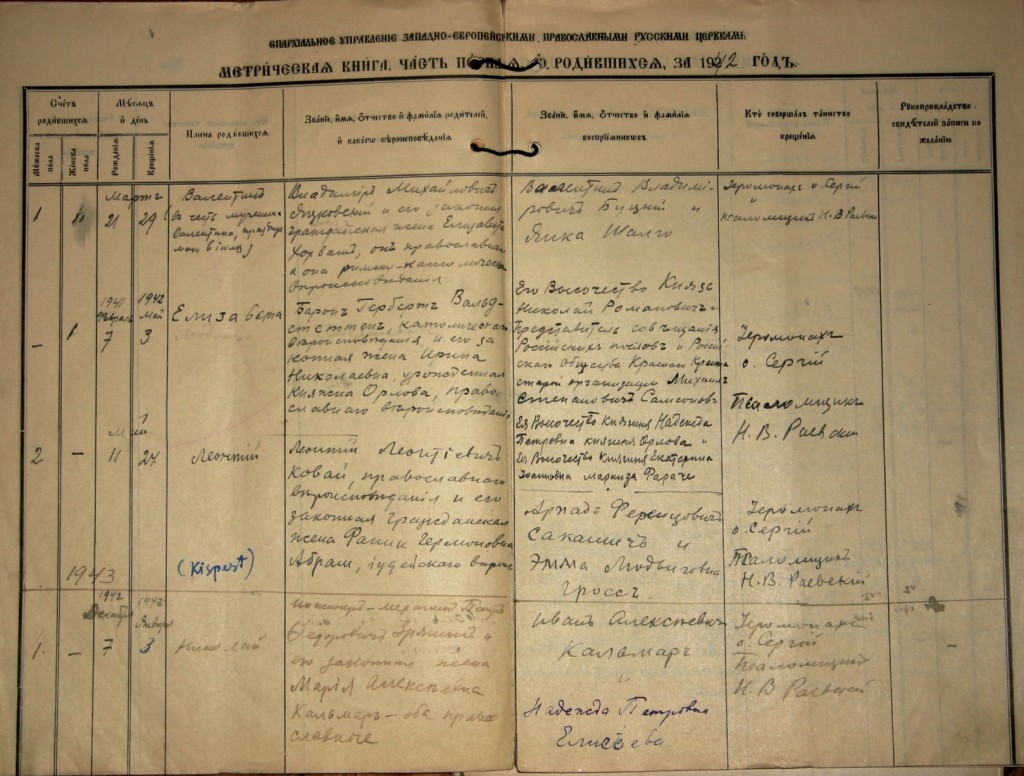 Епархіальное управленіе западно-европейскими православными русскими церквами
Метрическая книга. Часть о родившихся, за 1942 годъ.
Счётъ родившихся
Мѣсяцъ и день
Имена родившихся
Званіе, имя, отчество и фамилія родителей,
и какого вѣроисповѣданія
Званіе, имя, отчество и фамилія
воспріемниковъ
Кто совершалъ таинство
крещенія
Рукоприкладство
свидѣтелей записи по
желанію
Мужеска пола
Женска пола
Рожденія
Крещенія
Мартъ
1 21 29
Валентинъ
въ честь мученика
Валентина,
Владиміръ Михайловичъ
и его законная
гражданская жена Елизавета
Хорватъ, онъ православнаго
а она римско-католическаго
вѣроисповѣданія
Валентинъ Владимі-
ровичъ Буцкій и
Янка Шалго
Іеромонахъ о. Сергій
псаломщикъ Н. В. Раевскій
1941 1942
Февраль Май
– 1 7 3
Елизавета
Баронъ Гербертъ Вальд-
штеттенъ, католическаго
вѣроисповѣданія, и его за
конная жена Ирина
Николаевна, урожденная
Княжна Орлова, право-
славнаго вѣроисповѣданія
Его Высочество Князь
Николай Романовичъ
Представитель совѣщанія
Россійскихъ пословъ и Россій
скаго Общества Краснаго Креста
старой организаціи Михаилъ
Степановичъ Самсоновъ
Ея Высочество Княгиня Надежда
Петровна княгиня Орлова и
Ея Высочество Княгиня Екатерина
Іоанновна маркиза Фараче
Іеромонахъ
о. Сергій
Псаломщикъ
Н. В. Раевскій
Май
2 – 11 24
Леонтій
(Kispest)
Леонтій Леонтіевичъ
Ковай, православнаго
вѣроисповѣданія и его
законная гражданская
жена Фанни Германовна
Абрам, іудейскаго вѣроис
Арпадъ Ференцовичъ
Сакаличъ и
Эмма Людвиговна
Гроссъ
Іеромонахъ
о. Сергій
Псаломщикъ
Н. В. Раевскій
1943
1942 1943
Декабря Января
1. – 7 3
Николай
Инженеръ – механикъ Петръ
Ѳедоровичъ и
его законная жена
Марія Алексѣевна
Кальмаръ – оба право
славные
Иванъ Алексѣевичъ
Кальмаръ
и
Надежда Петровна
Елисѣева
Іеромонахъ
о. Сергій
Псаломщикъ
Н. В. Раевскій